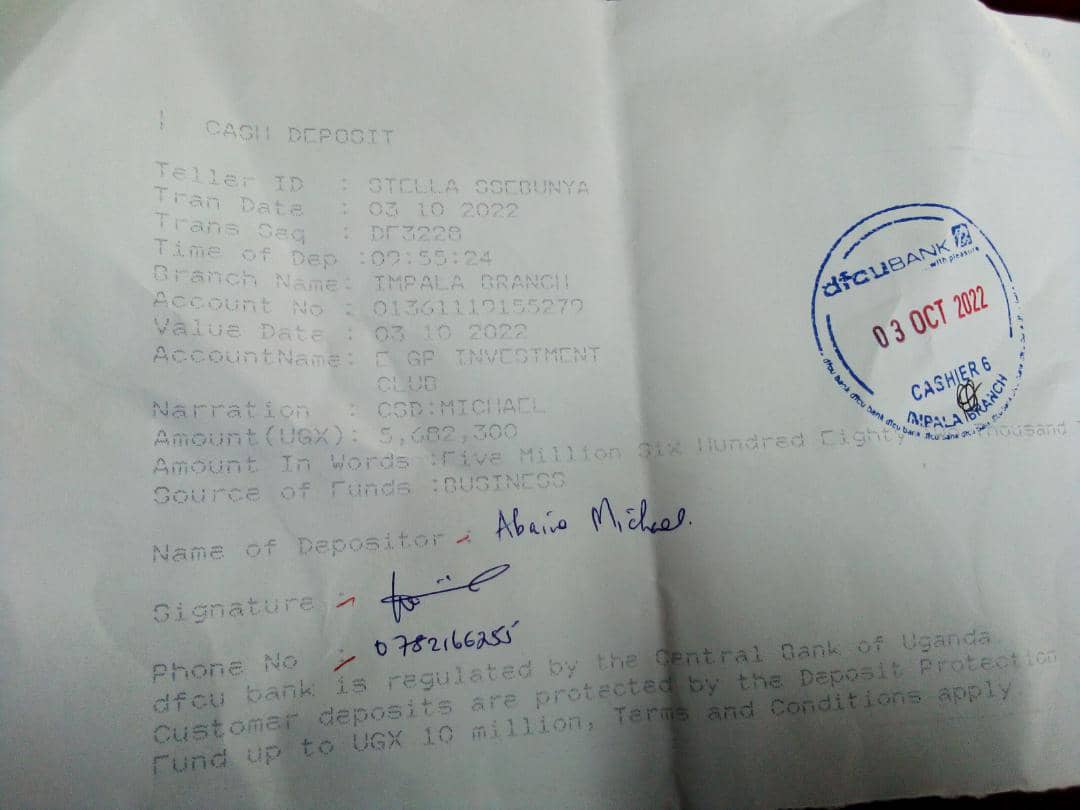 CASH DEPOSIT
Teller ID : STELLA SSEBUNYA
Tran Date : 03 10 2022
Trans Seq : DF3228
Time of Dep :09:55:24
Branch Name: IMPALA BRANCH
Account No : 01361119155279
Value Date : 03 10 2022
AccountName: E GP INVESTMENT
CLUB
Narration : CSD:MICHAEL
Amount(UGX): 5,682,300
Amount In Words :Five Million Six Hundred Eighty Thousand
Source of Funds :BUSINESS
Name of Depositor : Michael
Signature :
Phone No : 0782166255
dfcu bank is regulated by the Central Bank of Uganda.
Customer deposits are protected by the Deposit Protection
Fund up to UGX 10 million, Terms and Conditions apply.
dfcu BANK
with pleasure
03 OCT 2022
CASHIER 6
IMPALA BRANCH
dfcu bank dfcu bank dfcu bank dfcu bank